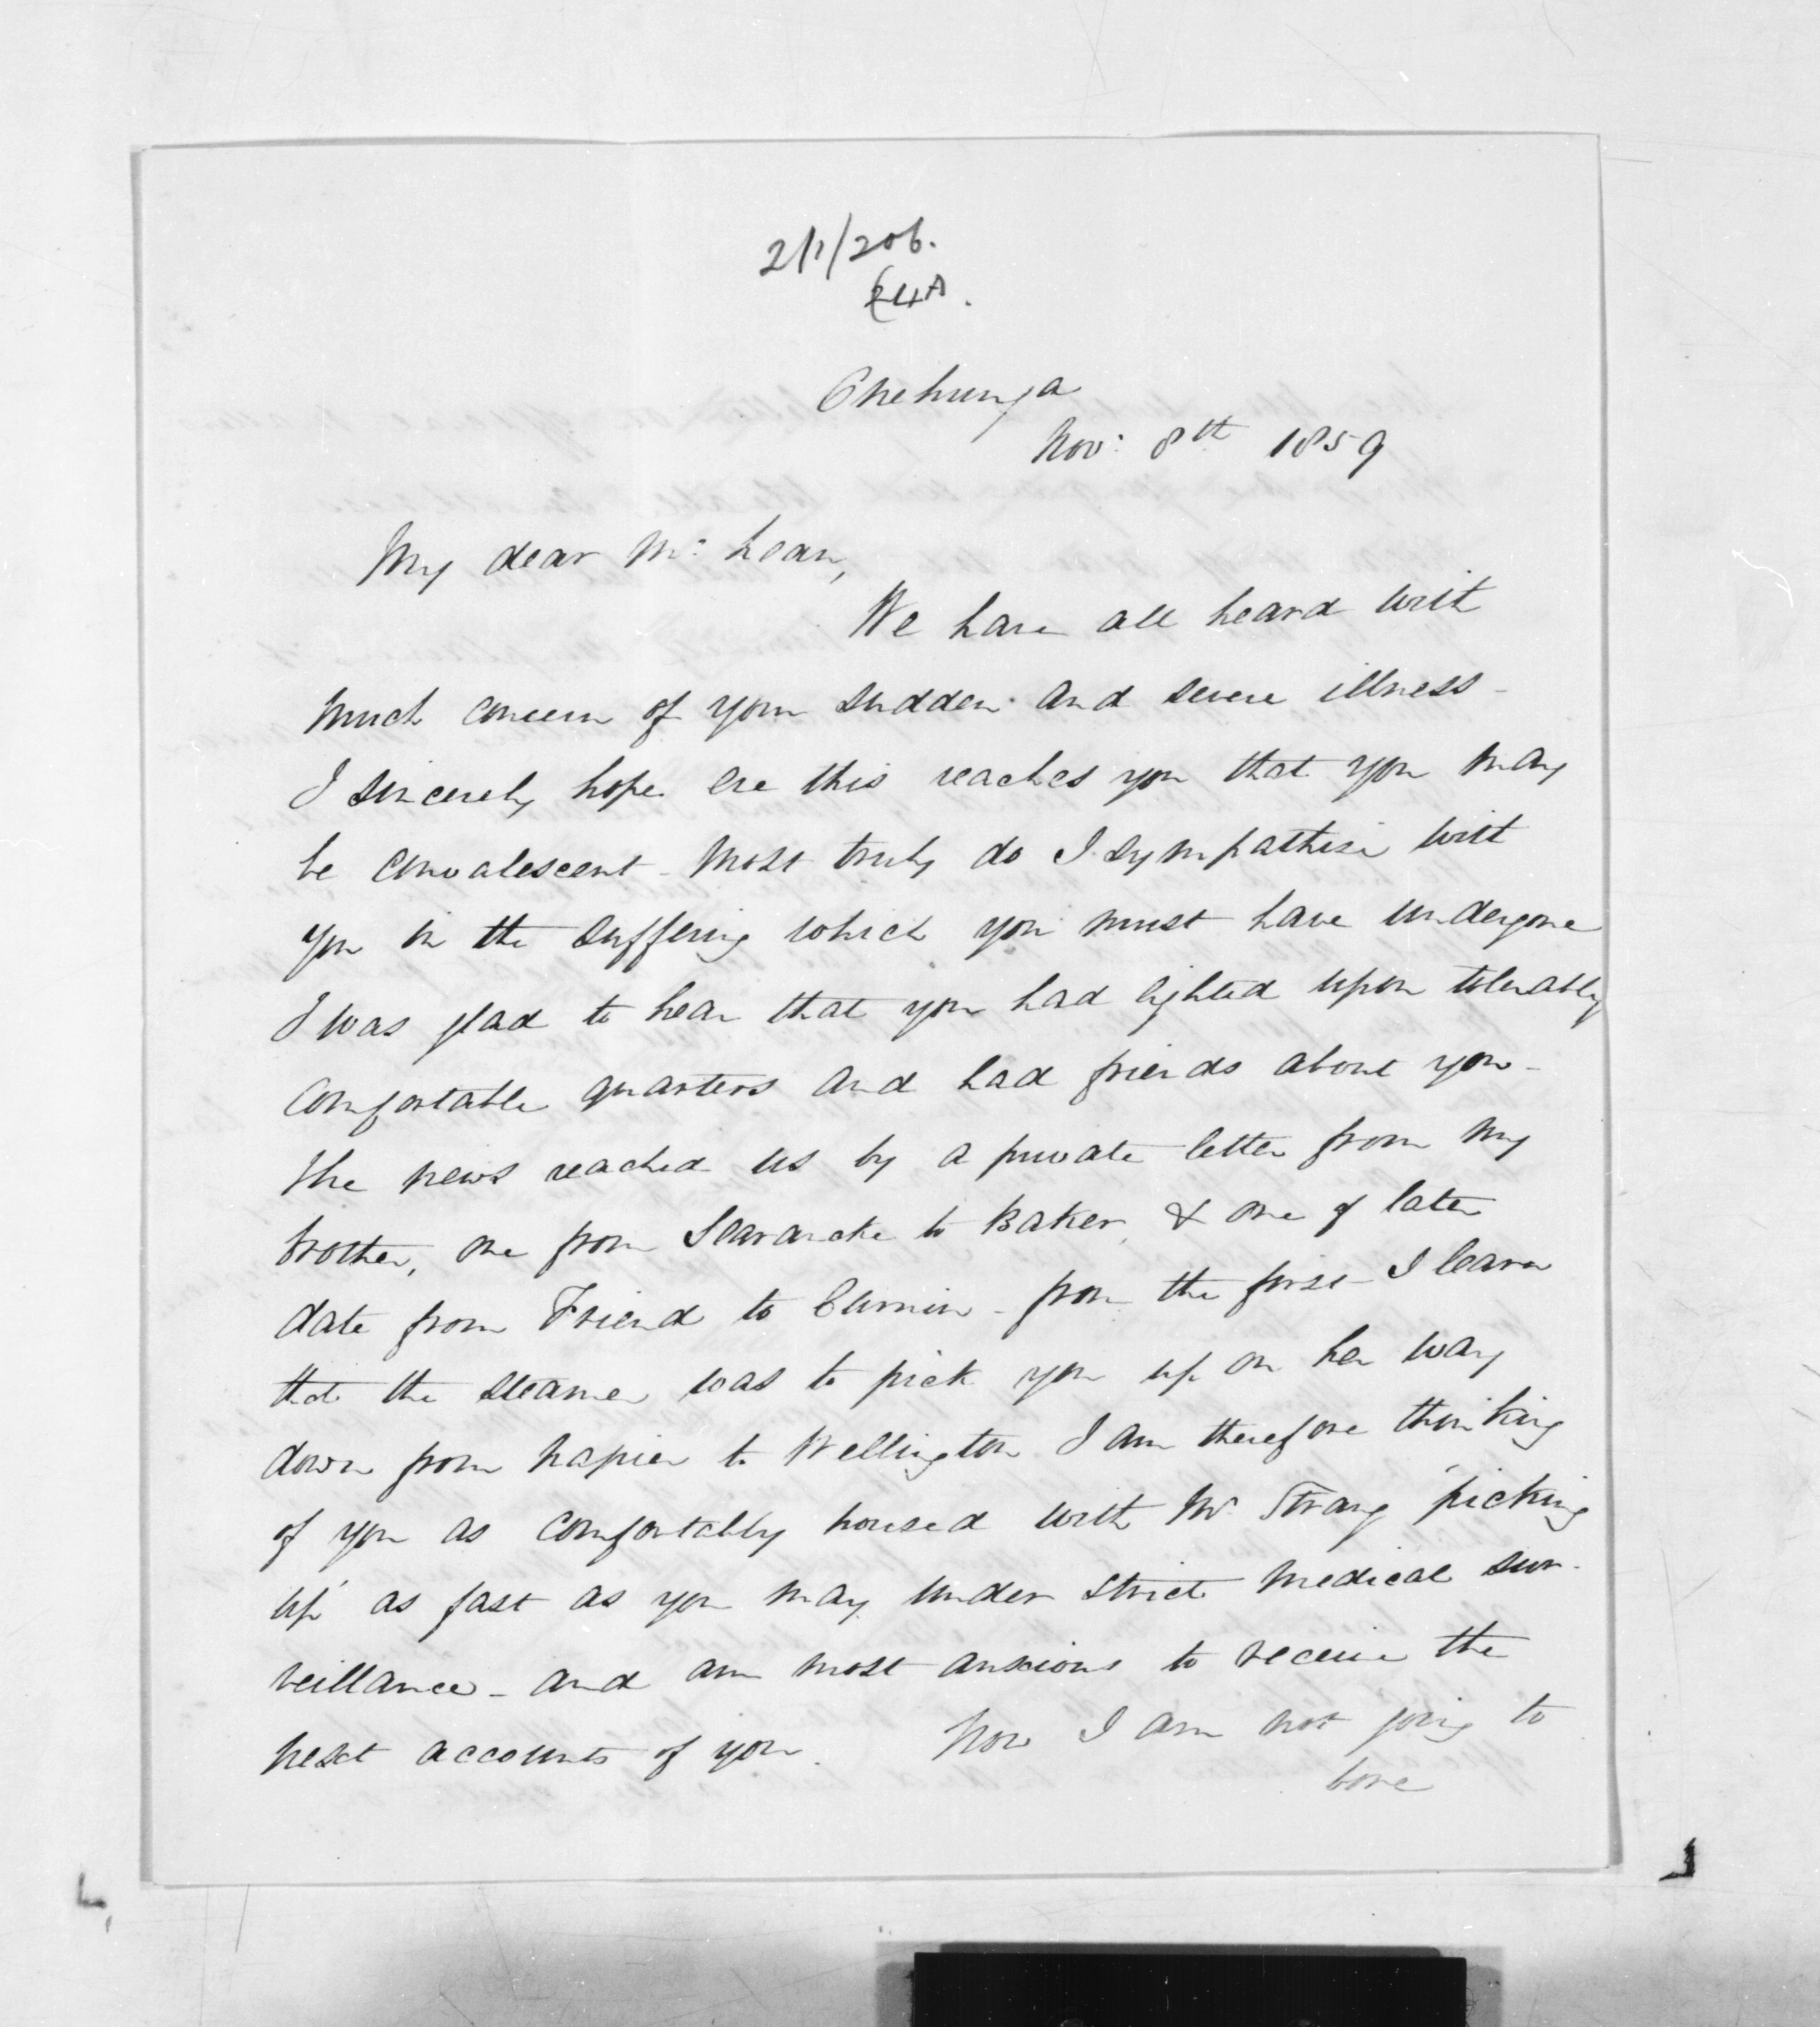 2/1/206.
Onehunga
Nov: 8th 1859
My dear Mc Lean,
We have all heard with
much concern of your sudden and severe illness -
I sincerely hope ere this reaches you that you may
be convalescent - Most truly do I sympathise with
you in the suffering which you must have undergone
I was glad to hear that you had lighted upon tolerably
comfortable quarters and had friends about you -
The news reached us by a private letter from my
brother, one from Searancke to Baker, & one of later
date from Friend to Curnin - from the first I learn
that the steamer was to pick you up on her way
down from Napier to Wellington I am therefore thinking
of you as comfortably housed with Mr Strang 'picking
up' as fast as you may under strict medical sur-
veillance - and am most anxious to receive the
next accounts of you. Now I am not going to
bore